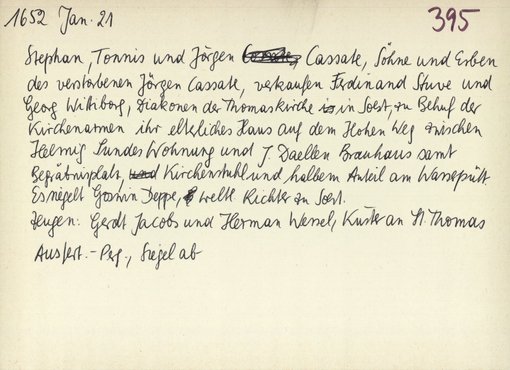 1652 Jan. 21 395
Stephan, Tonnis und Jörgen Cassate, Söhne und Erben
des verstorbenen Jörgen Cassate, verkaufen Ferdinand Stuve und
Georg Wittiborg, Diakonen der Thomaskirche in Soest, zu Behuf der
Kirchenarmen ihr elterliches Haus auf dem Hohen Weg zwischen
Helmig Sundes Wohnung und J. Daellen Brauhaus samt
Begräbnisplatz, Kirchenstuhl und halbem Anteil am Wasserpütt.
Es siegelt Goswin Deppe, weltl. Richter zu Soest.
Zeugen: Gerdt Jacobs und Herman Wessel, Küster an St. Thomas
Ausfert. - Perg., Siegel ab